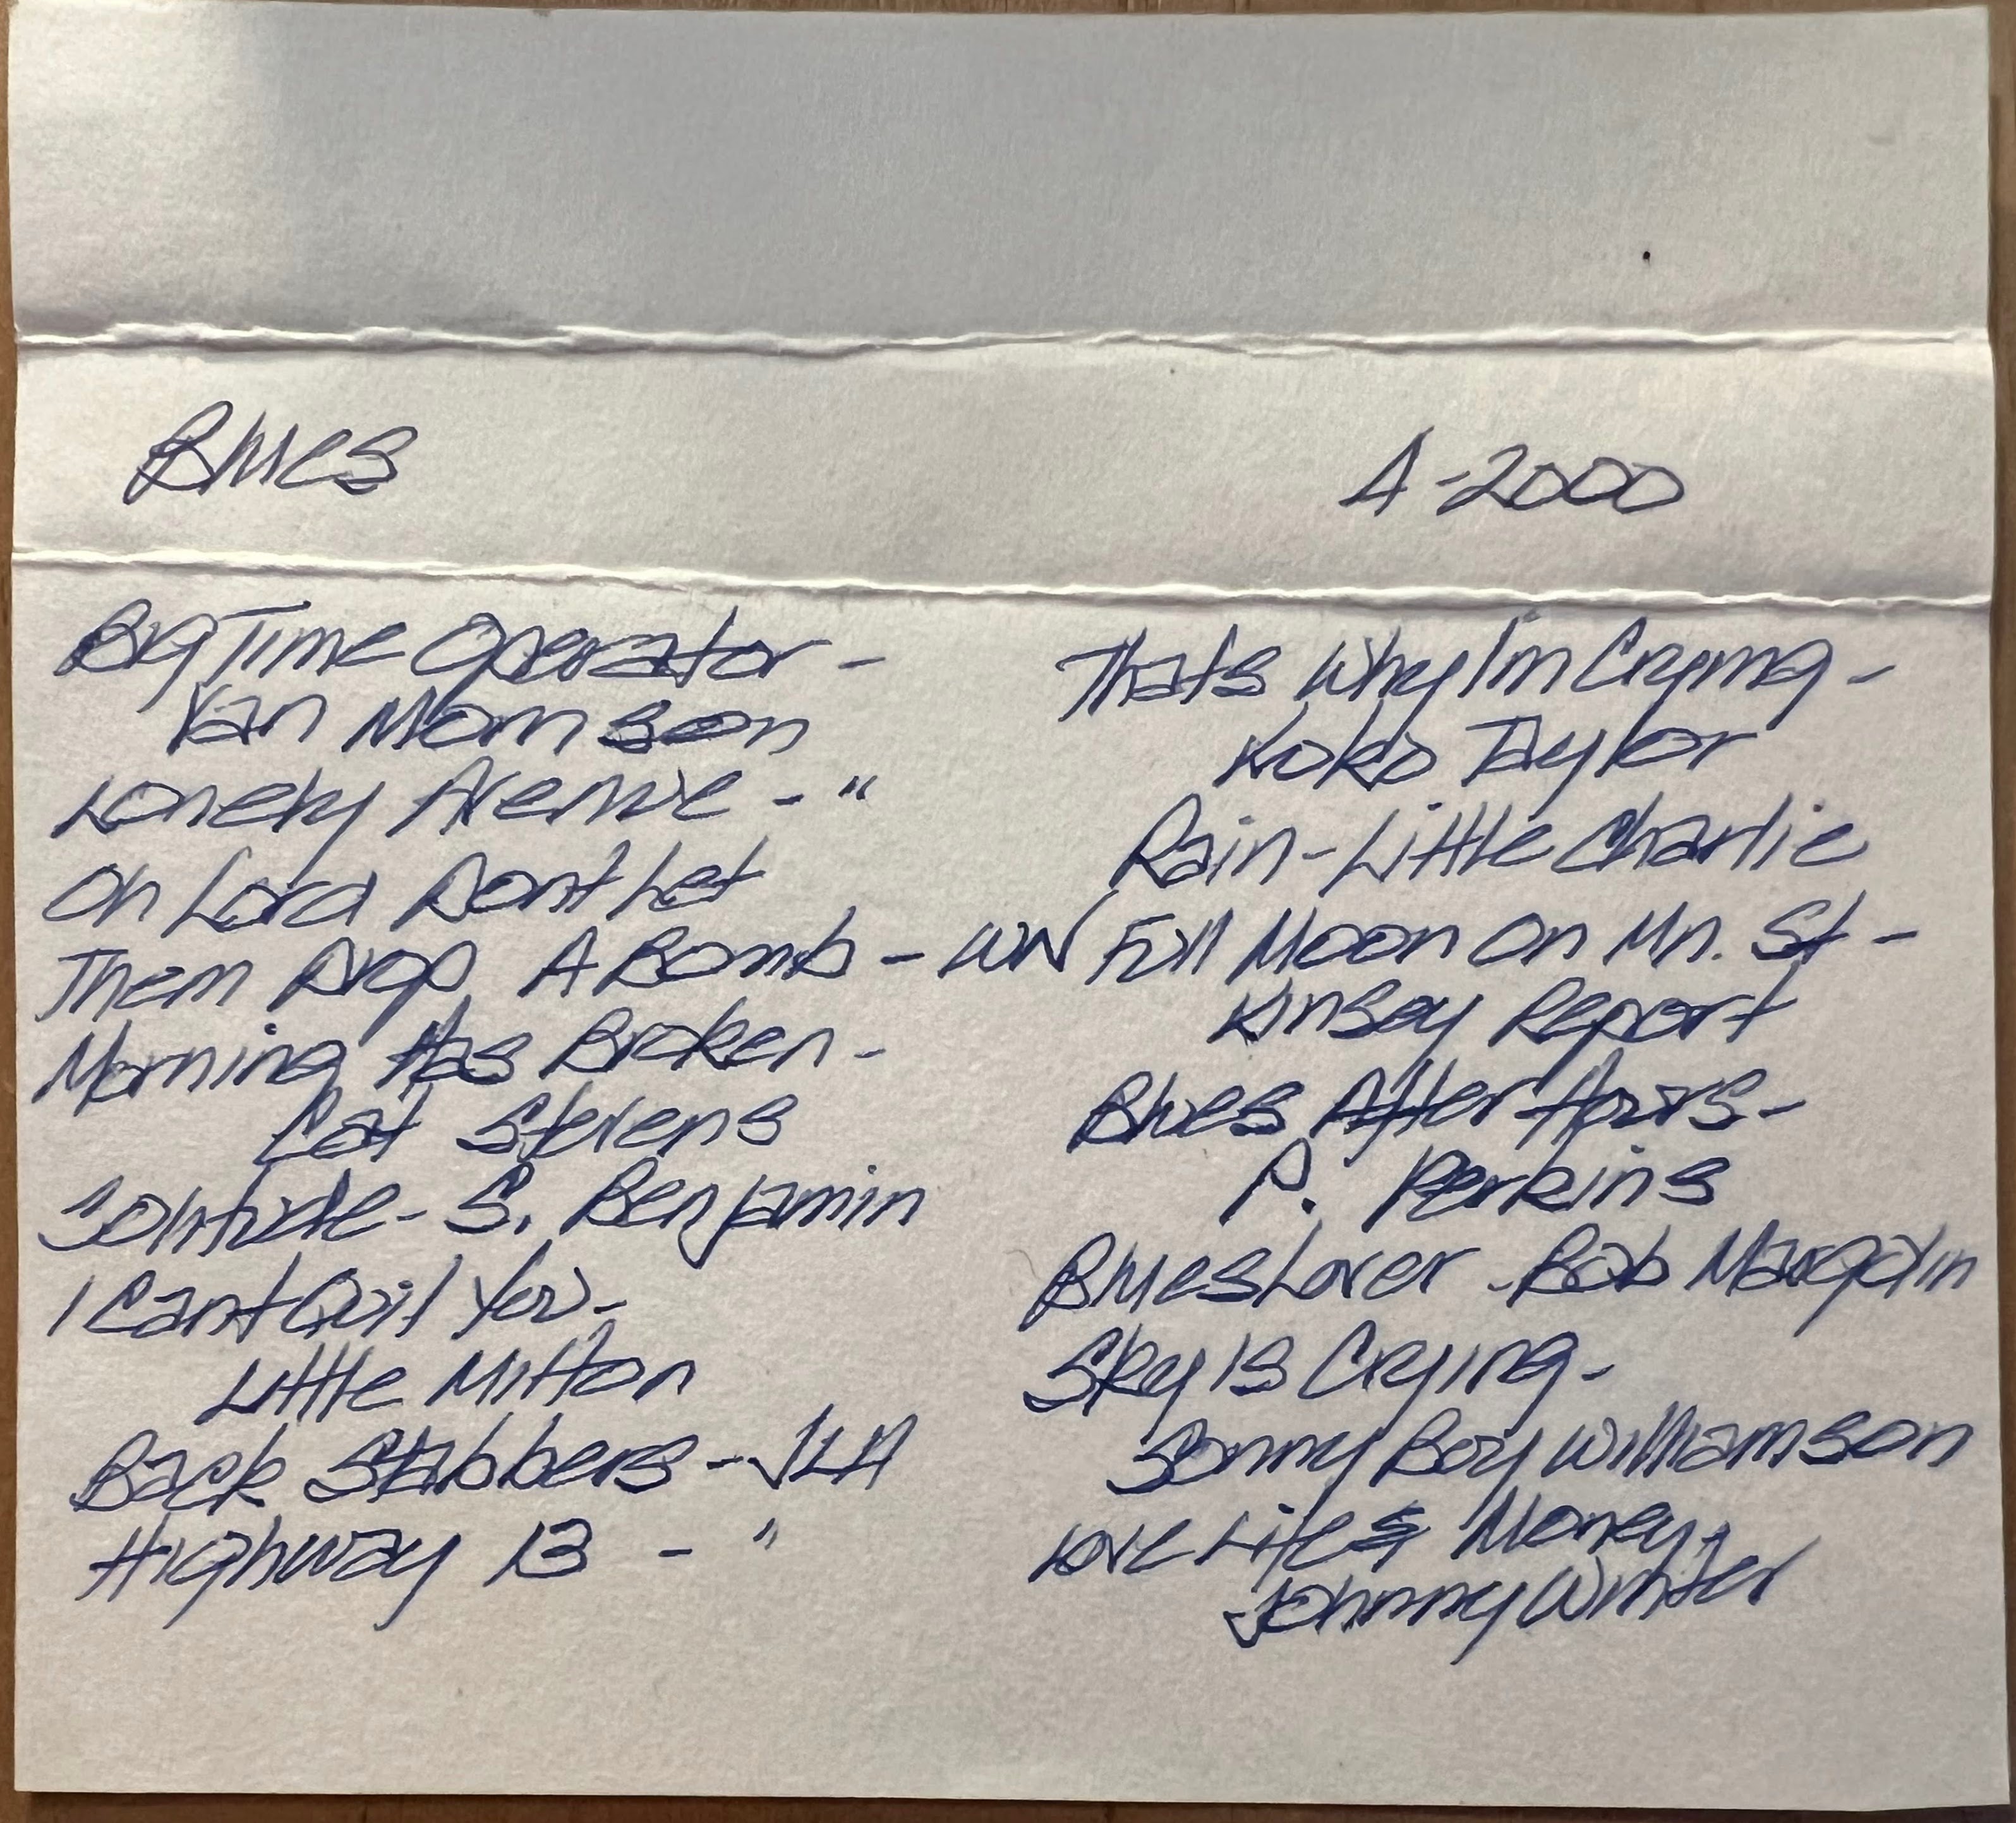 Blues
A-2000
Big Time Operator -
Van Morrison
Lonely Avenue - "
Oh Lord Dont Let
Them Drop A Bomb - WW
Morning Has Broken -
Cat Stevens
- S. Benjamin
I Cant Quit You -
Little Milton
Back Stabbers - JLH
Highway 13 - "
Thats Why I'm Crying -
Koko Taylor
Rain - Little Charlie
Full Moon On Mn. St -
Kinsey Report
Blues After Hours -
P. Perkins
Blues Lover - Bob Margolin
Sky Is Crying -
Sonny Boy Williamson
Love Life & Money -
Johnny Winter